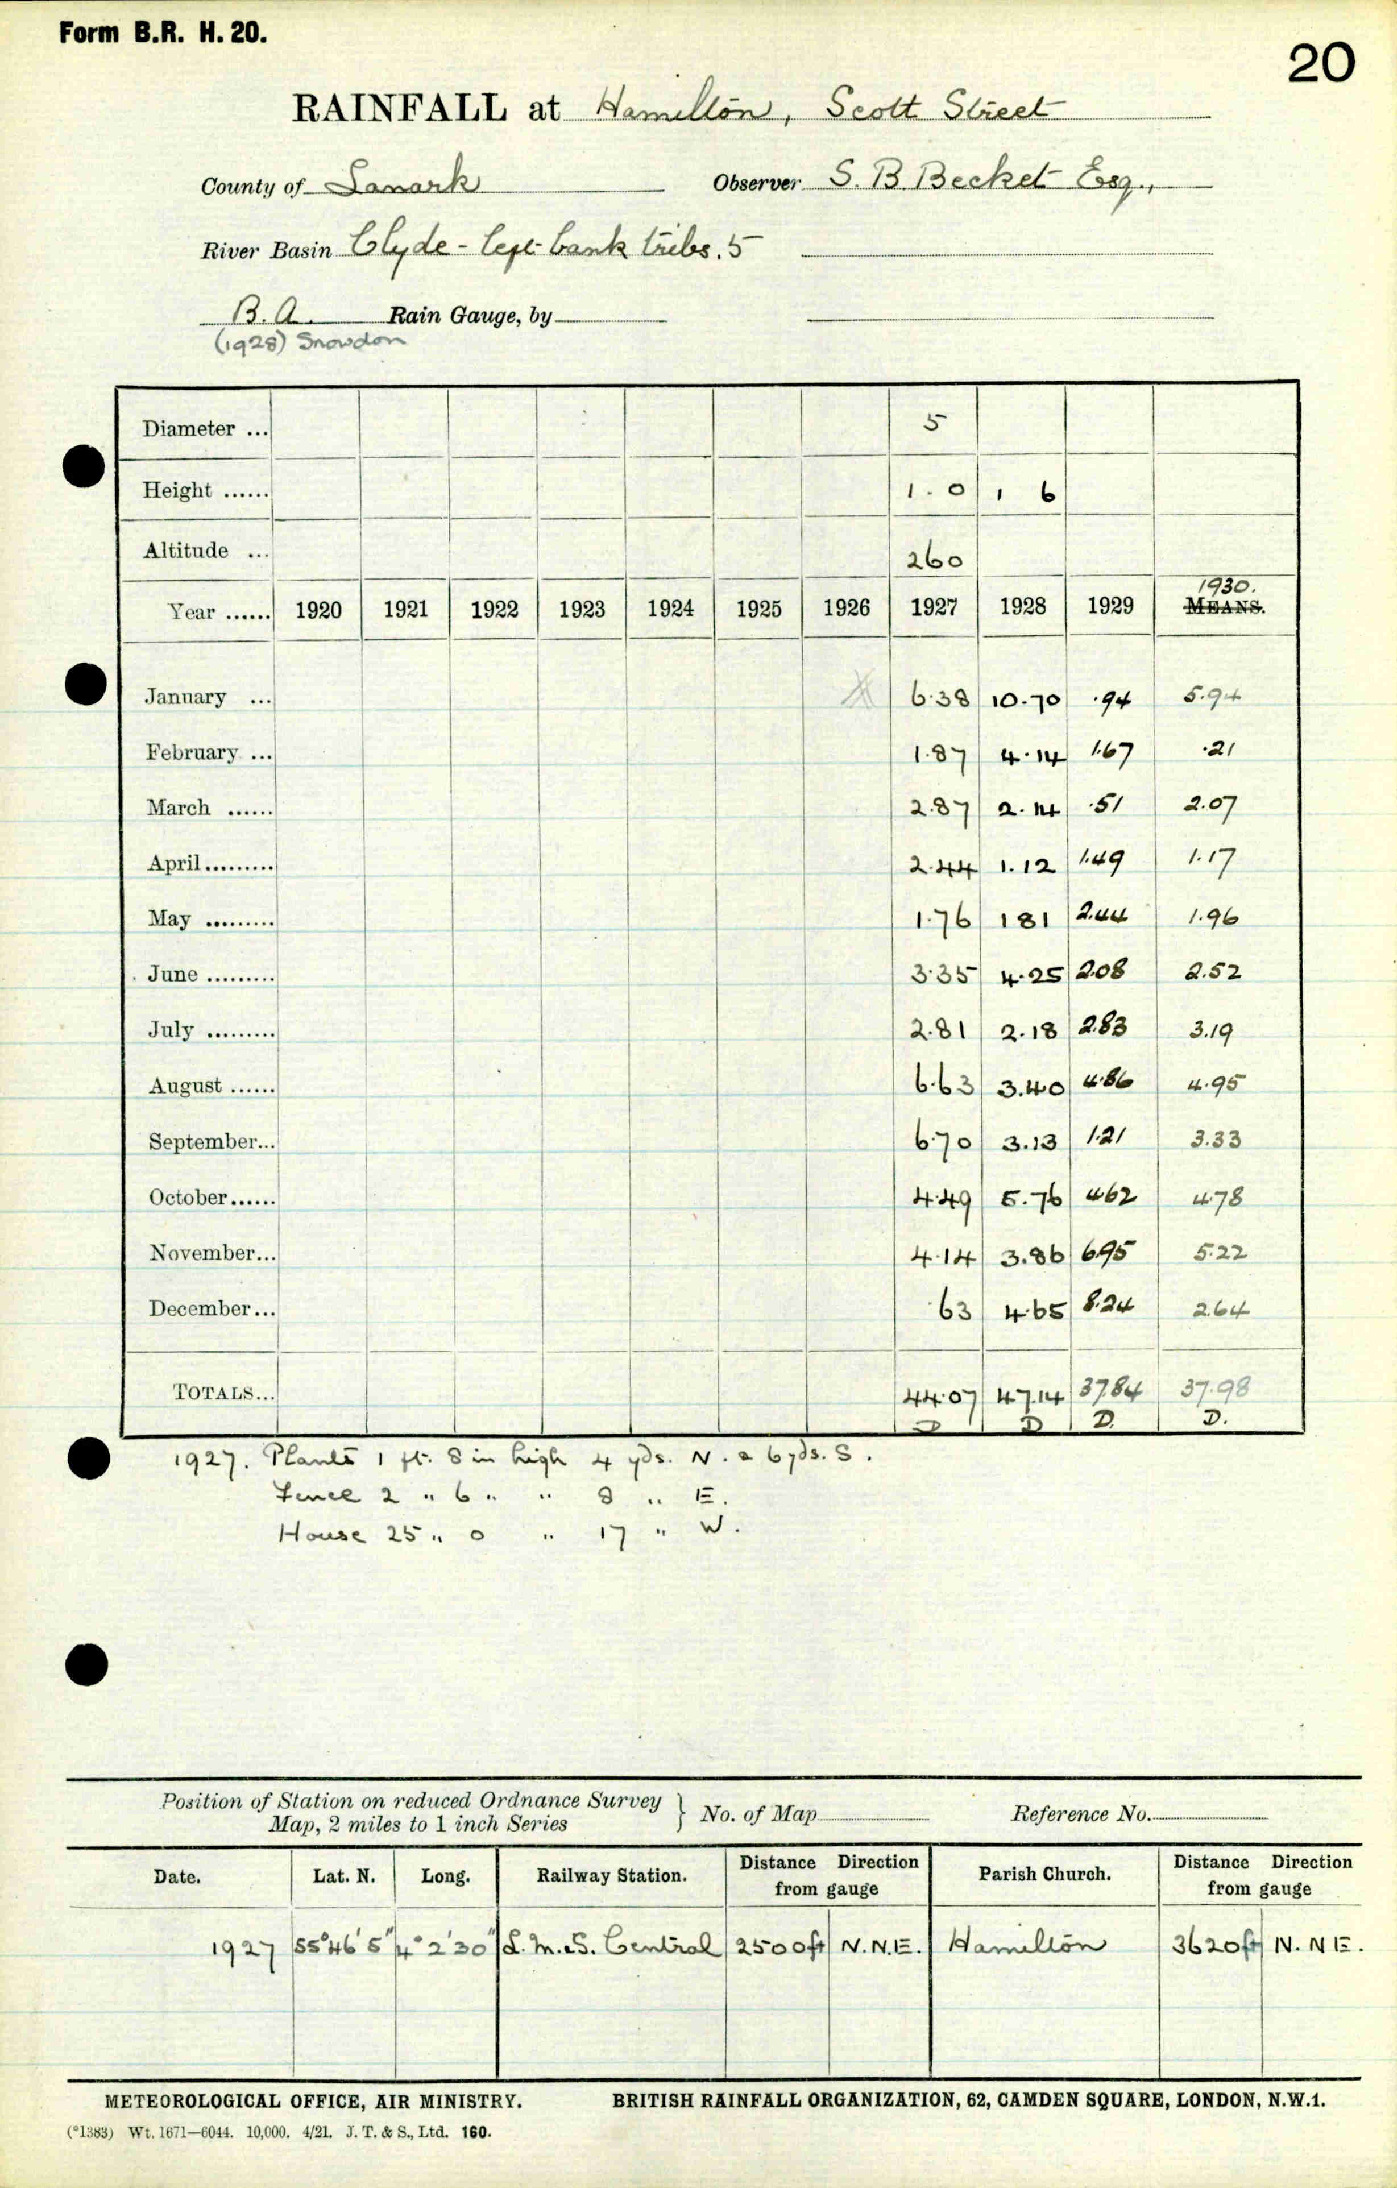 Form B.R. H. 20.
20
RAINFALL at Hamilton, Scott Street
County of Lanark Observer S. B. Becket Esq.,
River Basin Clyde - left bank tribs. 5
B.A. Rain Gauge, by
(1928) Snowdon
Diameter ... 5
Height ...... 1. 0 1 6
Altitude ... 260
1930.
Year ...... 1920 1921 1922 1923 1924 1925 1926 1927 1928 1929 MEANS.
January ... 6.38 10.70 .94 5.94
February ... 1.87 4.14 1.67 .21
March ...... 2.87 2.14 .51 2.07
April ......... 2.44 1.12 1.49 1.17
May ......... 1.76 1 81 2.44 1.96
June ......... 3.35 4.25 2.08 2.52
July ......... 2.81 2.18 2.83 3.19
August ...... 6.63 3.40 4.86 4.95
September... 6.70 3.13 1.21 3.33
October...... 4.49 5.76 4.62 4.78
November... 4.14 3.86 6.95 5.22
December... .63 4.65 8.24 2.64
TOTALS... 44.07 47.14 37.84 37.98
D D D. D.
1927. Plants 1 ft. 8 in high 4 yds. N. & 6 yds. S.
Fence 2 " 6 " " 8 " E.
House 25 " 0 " 17 " W.
Position of Station on reduced Ordnance Survey
Map, 2 miles to 1 inch Series } No. of Map Reference No.
Date. Lat. N. Long. Railway Station. Distance Direction from gauge Parish Church. Distance Direction from gauge
1927 55° 46' 5" 4° 2' 30" L.M.S. Central 2500ft N.N.E. Hamilton 3620ft N.N.E.
METEOROLOGICAL OFFICE, AIR MINISTRY. BRITISH RAINFALL ORGANIZATION, 62, CAMDEN SQUARE, LONDON, N.W.1.
(*1383) Wt. 1671—6044. 10,000. 4/21. J. T. & S., Ltd. 160.